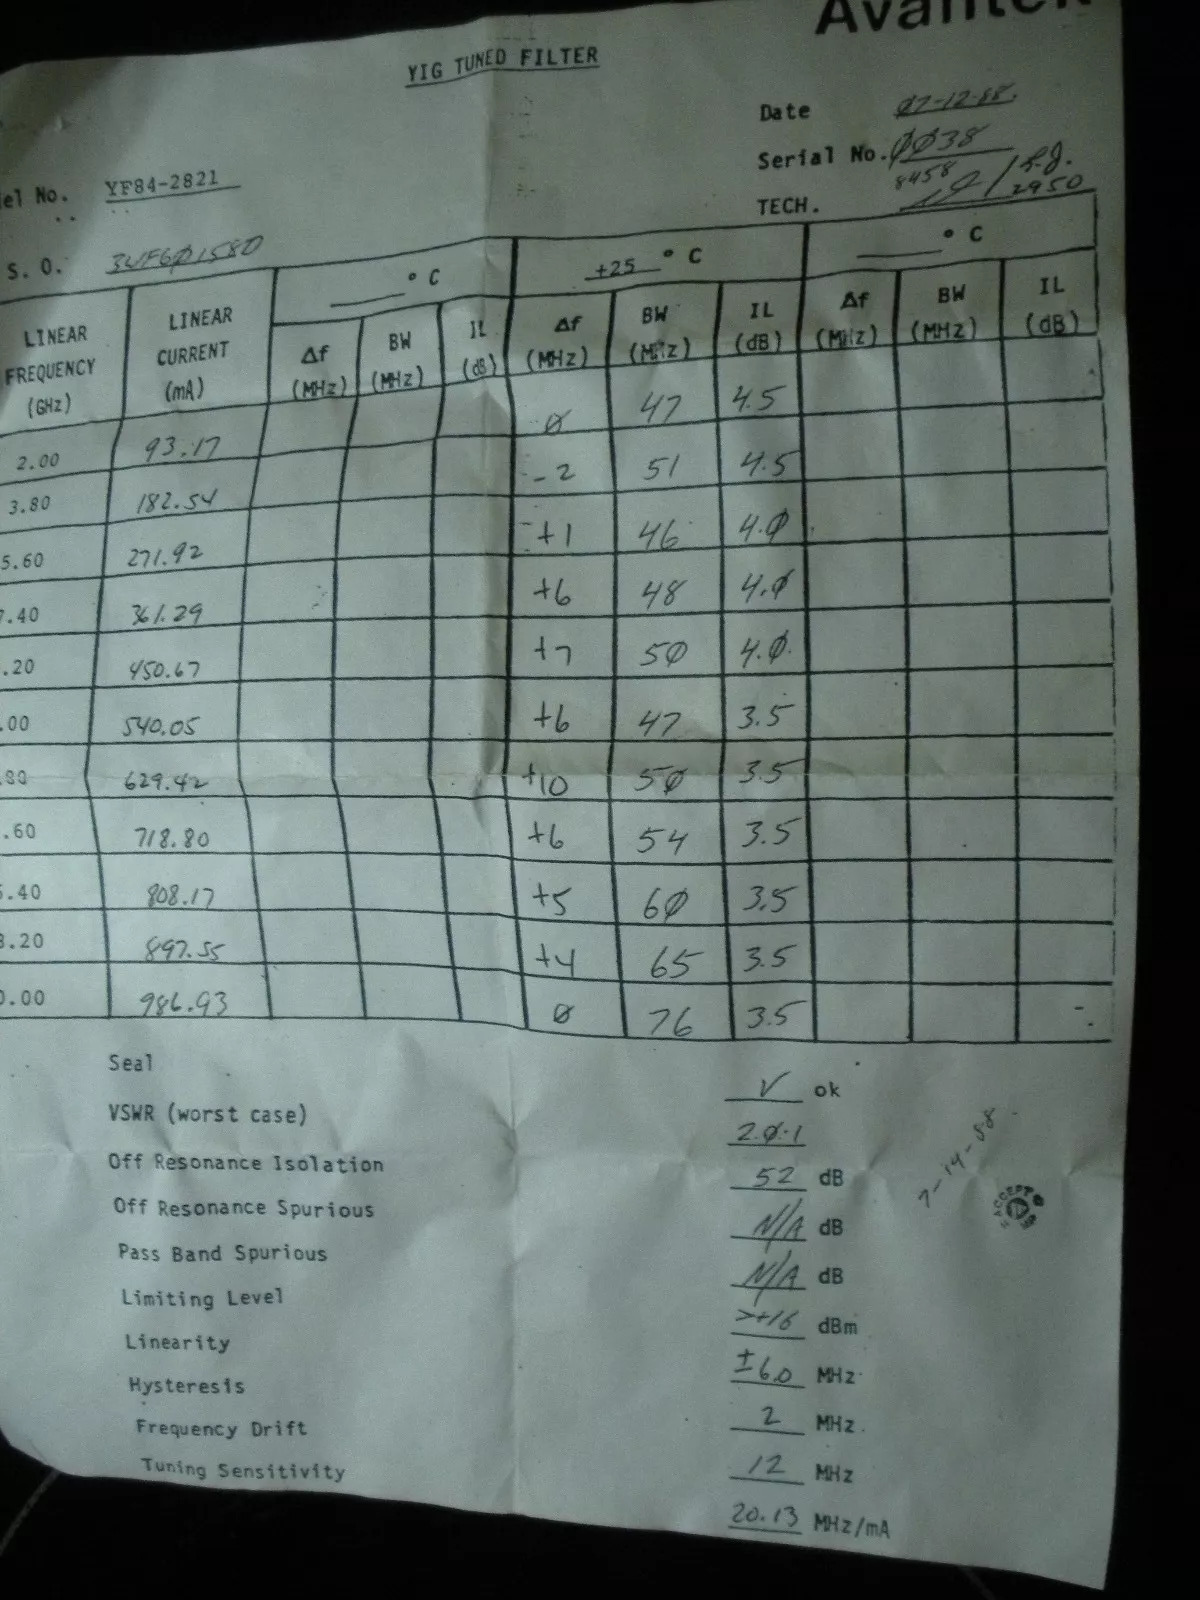 Avantek
YIG TUNED FILTER
Date 07-12-88.
Serial No. 0038
8458 / L.J. 2950
TECH.
el No. YF84-2821
S. O. 3WF601580
° C +25 ° C ° C
LINEAR FREQUENCY (GHz) LINEAR CURRENT (mA) Δf (MHz) BW (MHz) IL (dB) Δf (MHz) BW (MHz) IL (dB) Δf (MHz) BW (MHz) IL (dB)
2.00 93.17 0 47 4.5
3.80 182.54 -2 51 4.5
5.60 271.92 +1 46 4.0
7.40 361.29 +6 48 4.0
.20 450.67 +7 50 4.0
.00 540.05 +6 47 3.5
.80 629.42 +10 50 3.5
.60 718.80 +6 54 3.5
5.40 808.17 +5 60 3.5
8.20 897.55 +4 65 3.5
0.00 986.93 0 76 3.5
Seal √ ok
VSWR (worst case) 2.0:1
Off Resonance Isolation 52 dB
Off Resonance Spurious N/A dB
Pass Band Spurious N/A dB
Limiting Level >+16 dBm
Linearity ±6.0 MHz
Hysteresis 2 MHz
Frequency Drift 12 MHz
Tuning Sensitivity 20.13 MHz/mA
7-14-88
ACCEPT